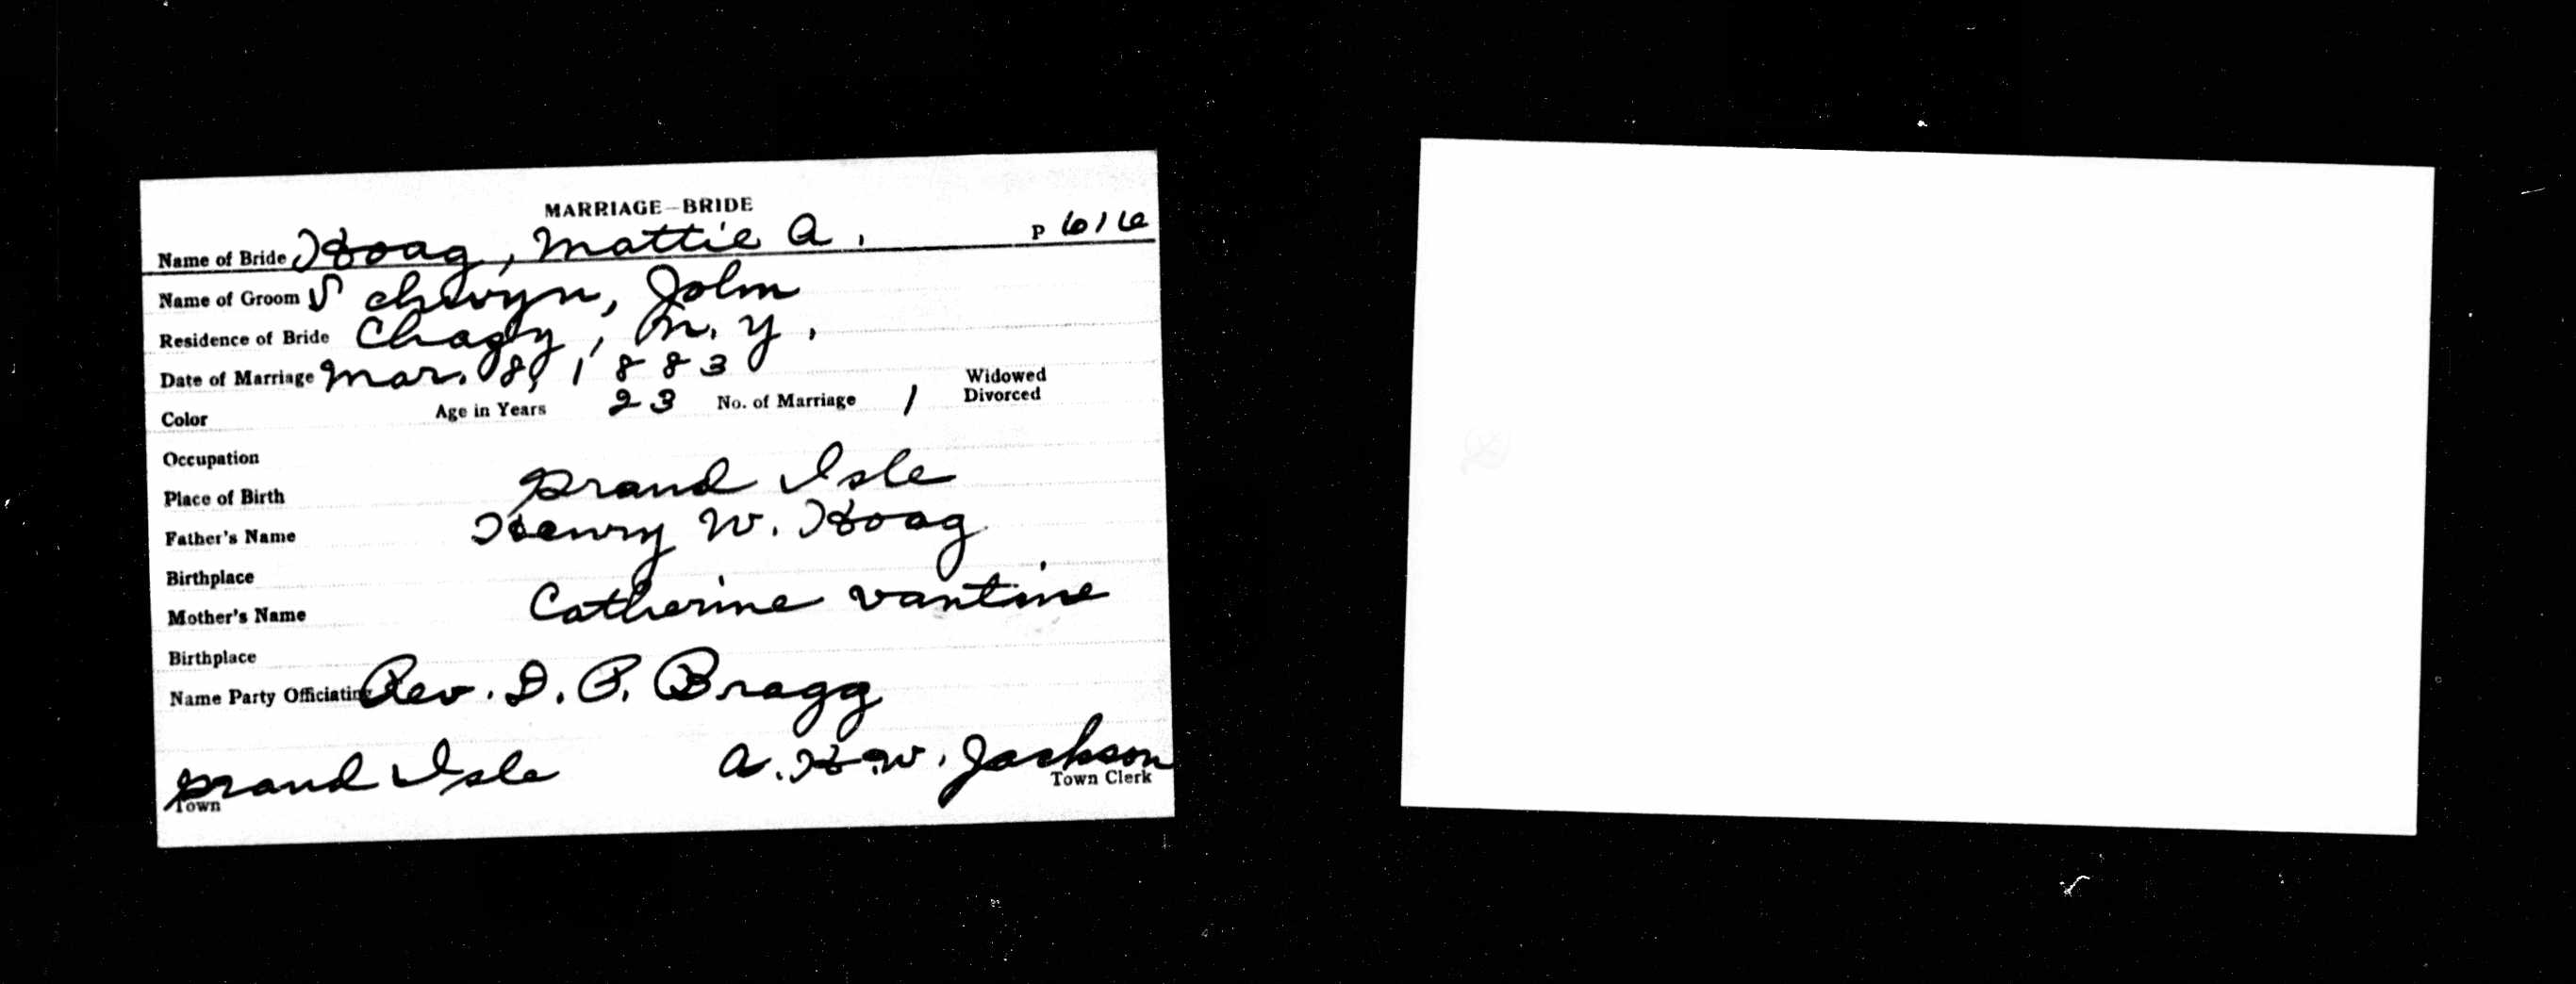 MARRIAGE—BRIDE
Name of Bride Hoag, Mattie A. P 616
Name of Groom Schwyn, John
Residence of Bride Chazy, N. Y.
Date of Marriage Mar. 8, 1883
Color Age in Years 23 No. of Marriage 1 Widowed Divorced
Occupation
Place of Birth Grand Isle
Father's Name Henry W. Hoag
Birthplace
Mother's Name Catherine Vantine
Birthplace
Name Party Officiating Rev. D. P. Bragg
Grand Isle A. H. W. Jackson
Town Town Clerk